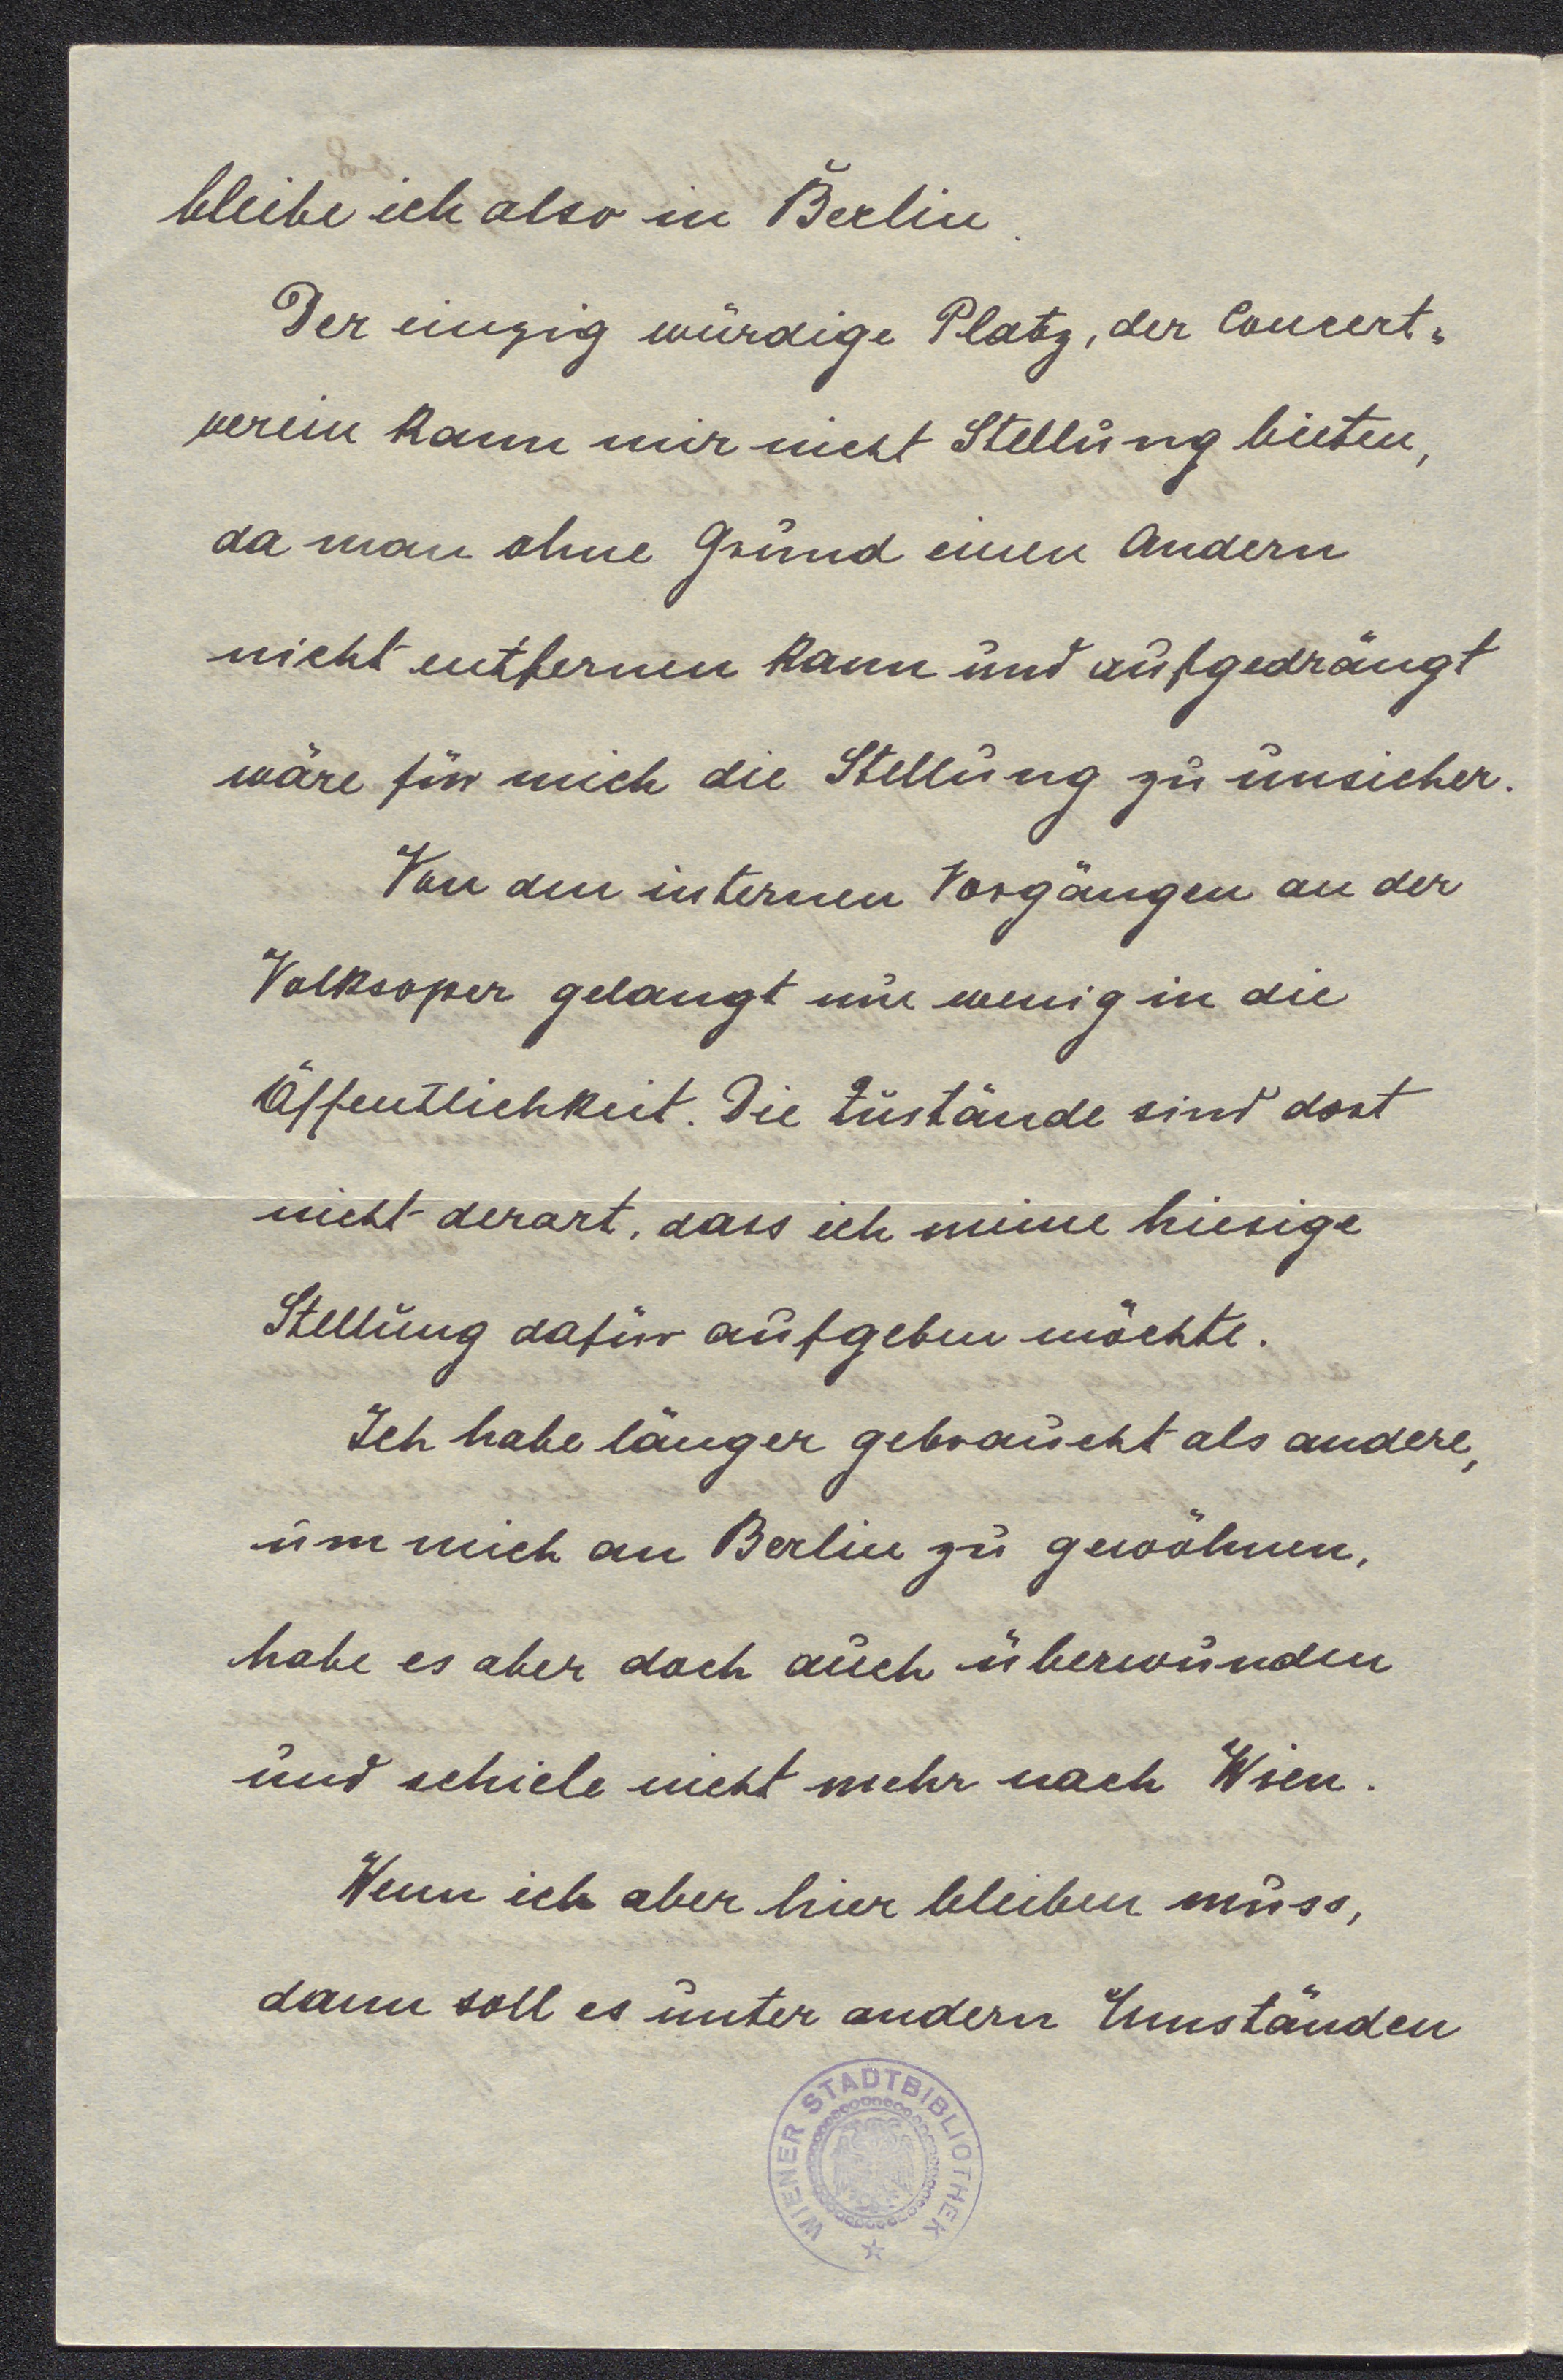 bleibe ich also in Berlin.
Der einzig würdige Platz, der Concert=
verein kann mir nicht Stellung bieten,
da man ohne Grund einen Andern
nicht entfernen kann und aufgedrängt
wäre für mich die Stellung zu unsicher.
Von den internen Vorgängen an der
Volksoper gelangt nur wenig in die
Öffentlichkeit. Die Zustände sind dort
nicht derart, dass ich meine hiesige
Stellung dafür aufgeben möchte.
Ich habe länger gebraucht als andere,
um mich an Berlin zu gewöhnen,
habe es aber doch auch überwunden
und schiele nicht mehr nach Wien.
Wenn ich aber hier bleiben muss,
dann soll es unter andern Umständen
WIENER STADTBIBLIOTHEK